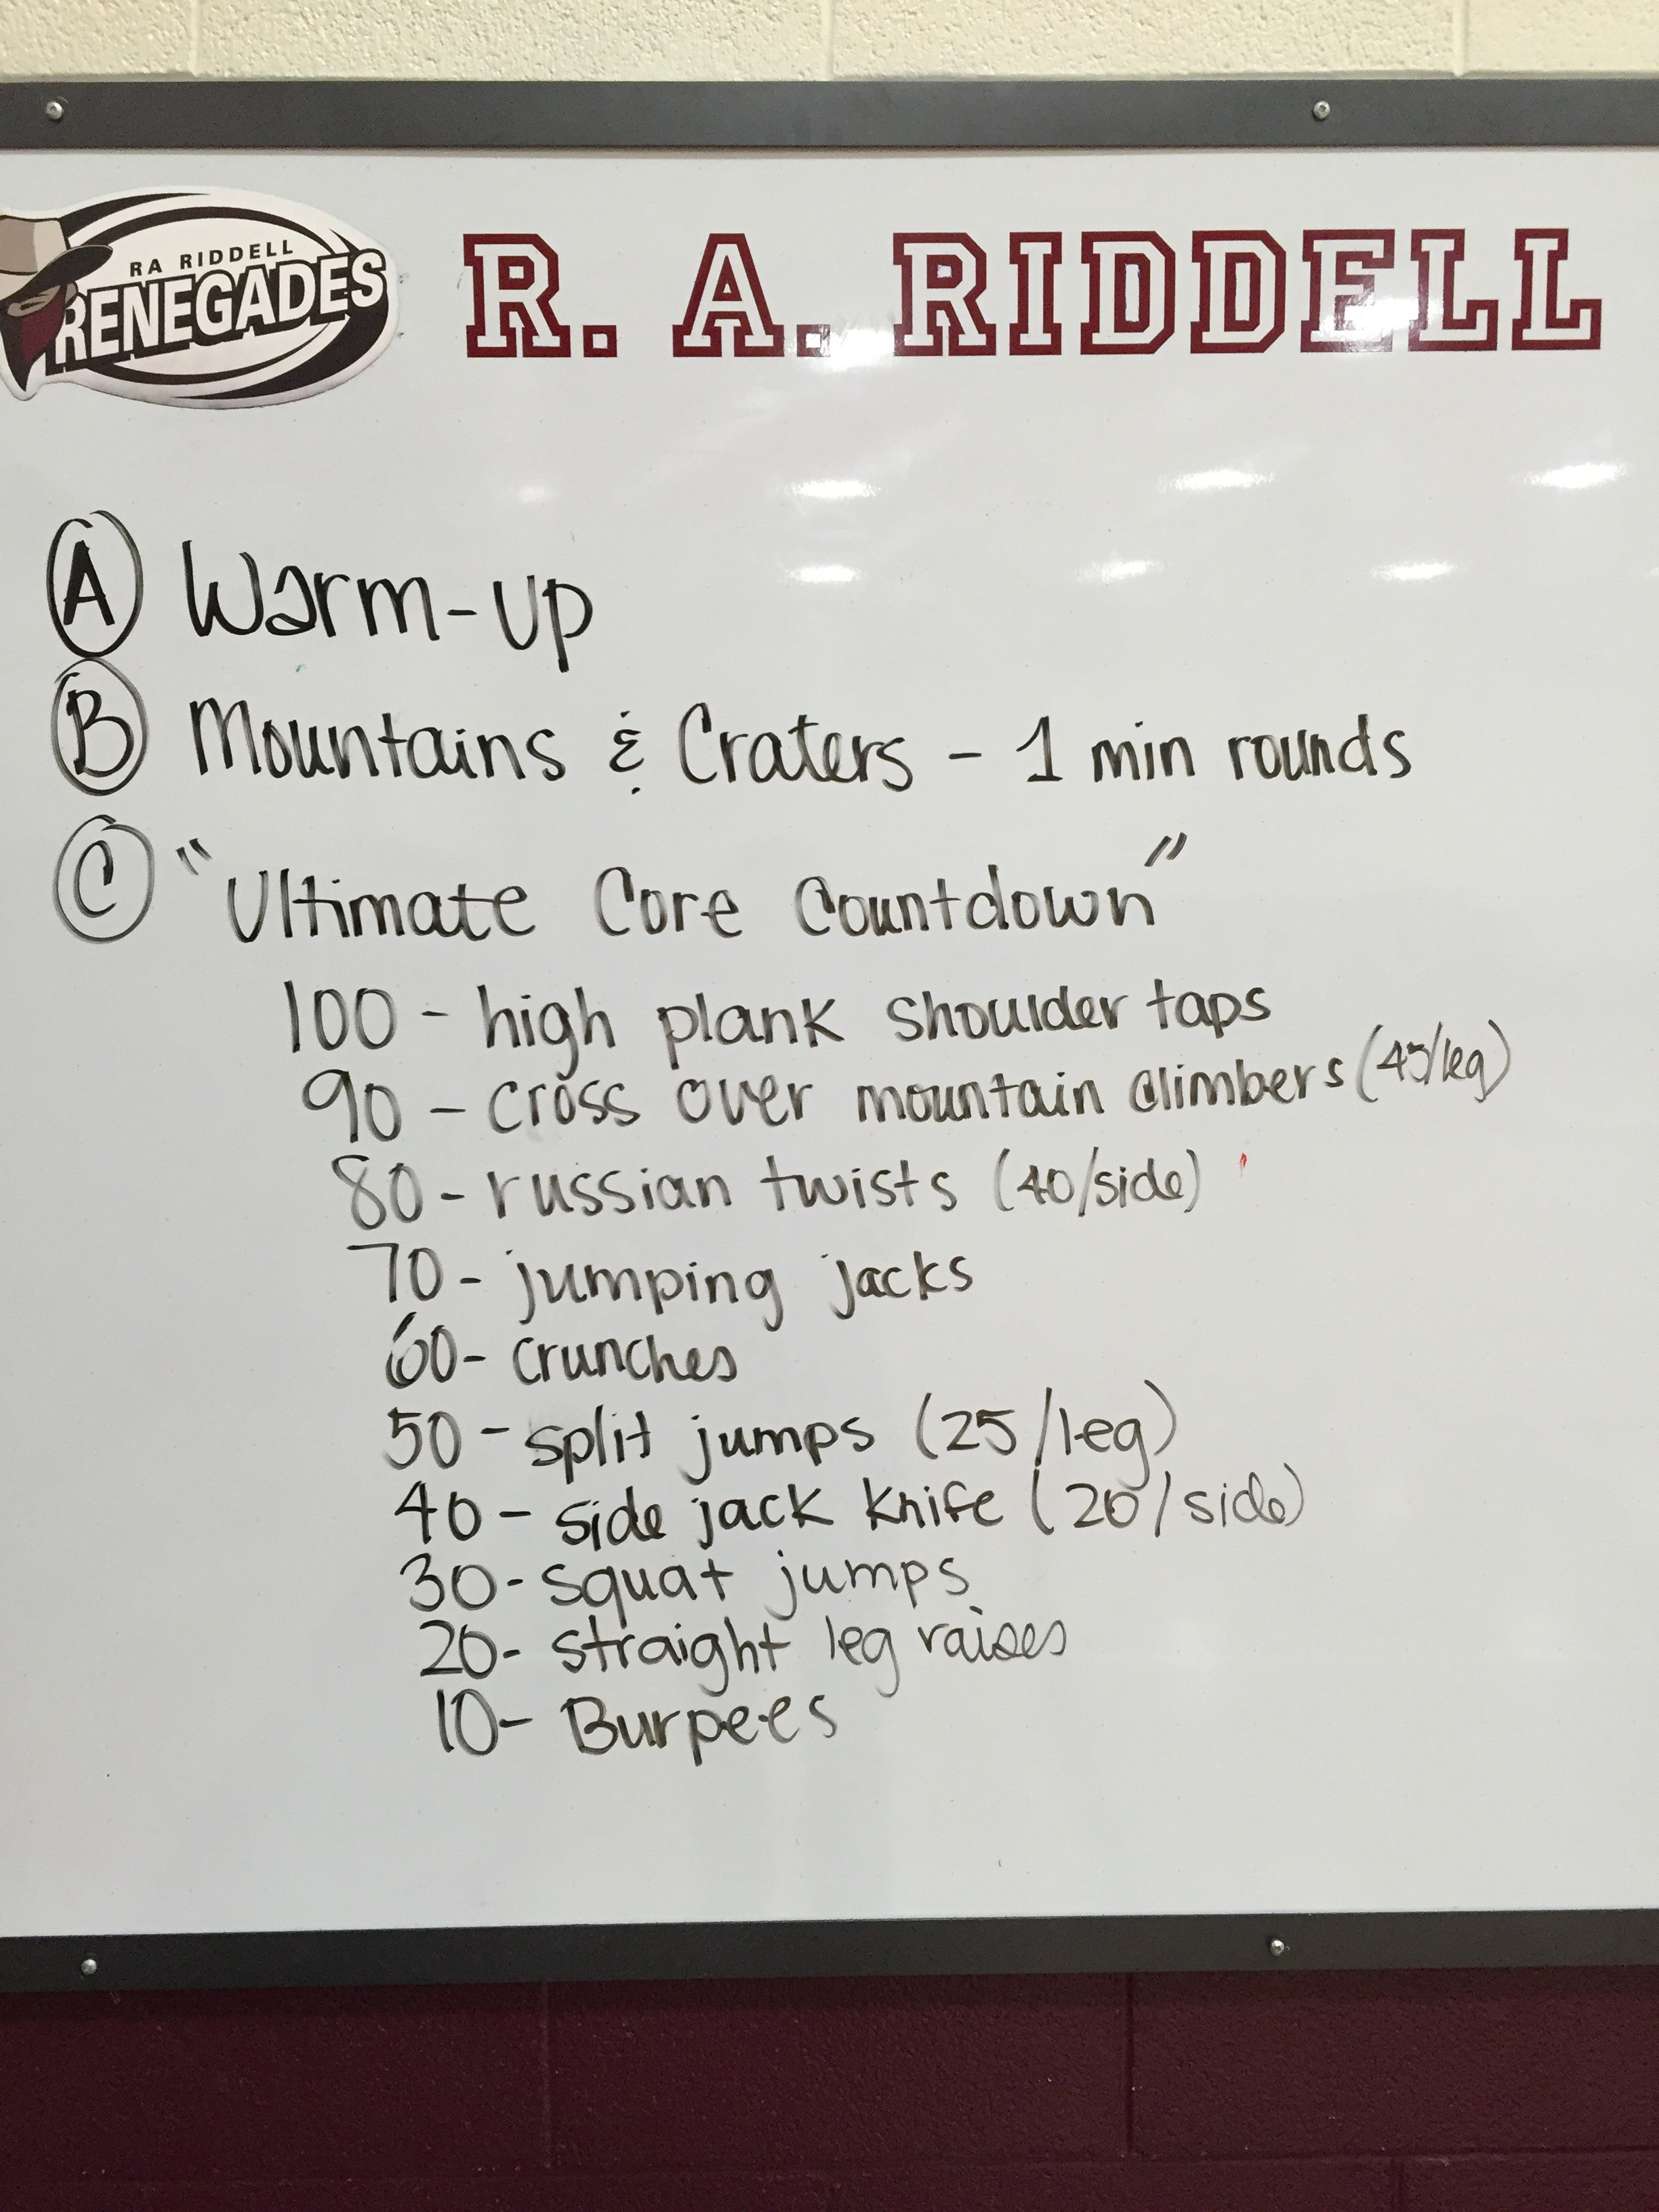 RA RIDDELL
RENEGADES
R. A. RIDDELL
A Warm-up
B Mountains & Craters - 1 min rounds
C "Ultimate Core Countdown"
100 - high plank shoulder taps
90 - cross over mountain climbers (45/leg)
80 - russian twists (40/side)
70 - jumping jacks
60 - crunches
50 - split jumps (25/leg)
40 - side jack knife (20/side)
30 - squat jumps
20 - straight leg raises
10 - Burpees